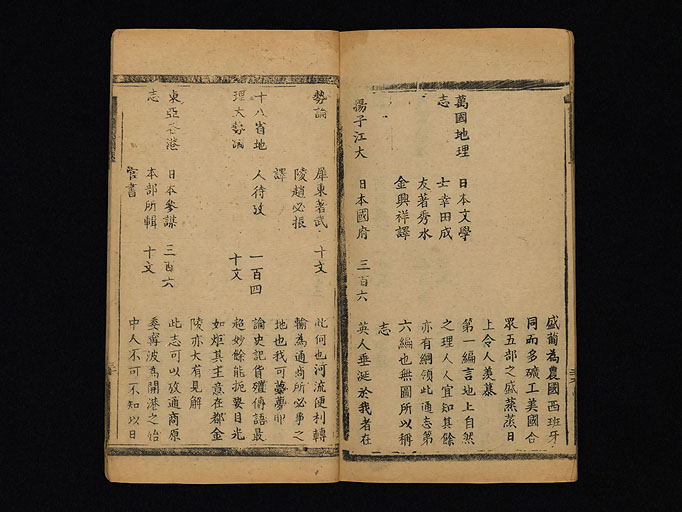 盛蔔為農國西班牙
同而多礦工美國合
眾五部之盛蒸蒸日
上令人羨慕
萬國地理
志
日本文學
士幸田成
友著秀水
金興祥譯
第一編言地上自然
之理人人宜知其餘
亦有綱領此通志第
六編也無圖所以稱
志
揚子江大
日本國府
三百六
英人垂涎於我者在
勢論
犀東著武
陵趙必振
譯
十文
此何也河流便利轉
輸為通商所必爭之
地也我可夢夢耶
十八省地
理大勢論
人待攷
一百四
十文
論史記貨殖傳語最
超妙餘能扼要目光
如炬其主意在都金
陵亦大有見解
東亞各港
志
日本參謀
本部所輯
官書
三百六
十文
此志可以攷通商原
委甯波為開港之始
中人不可不知以日